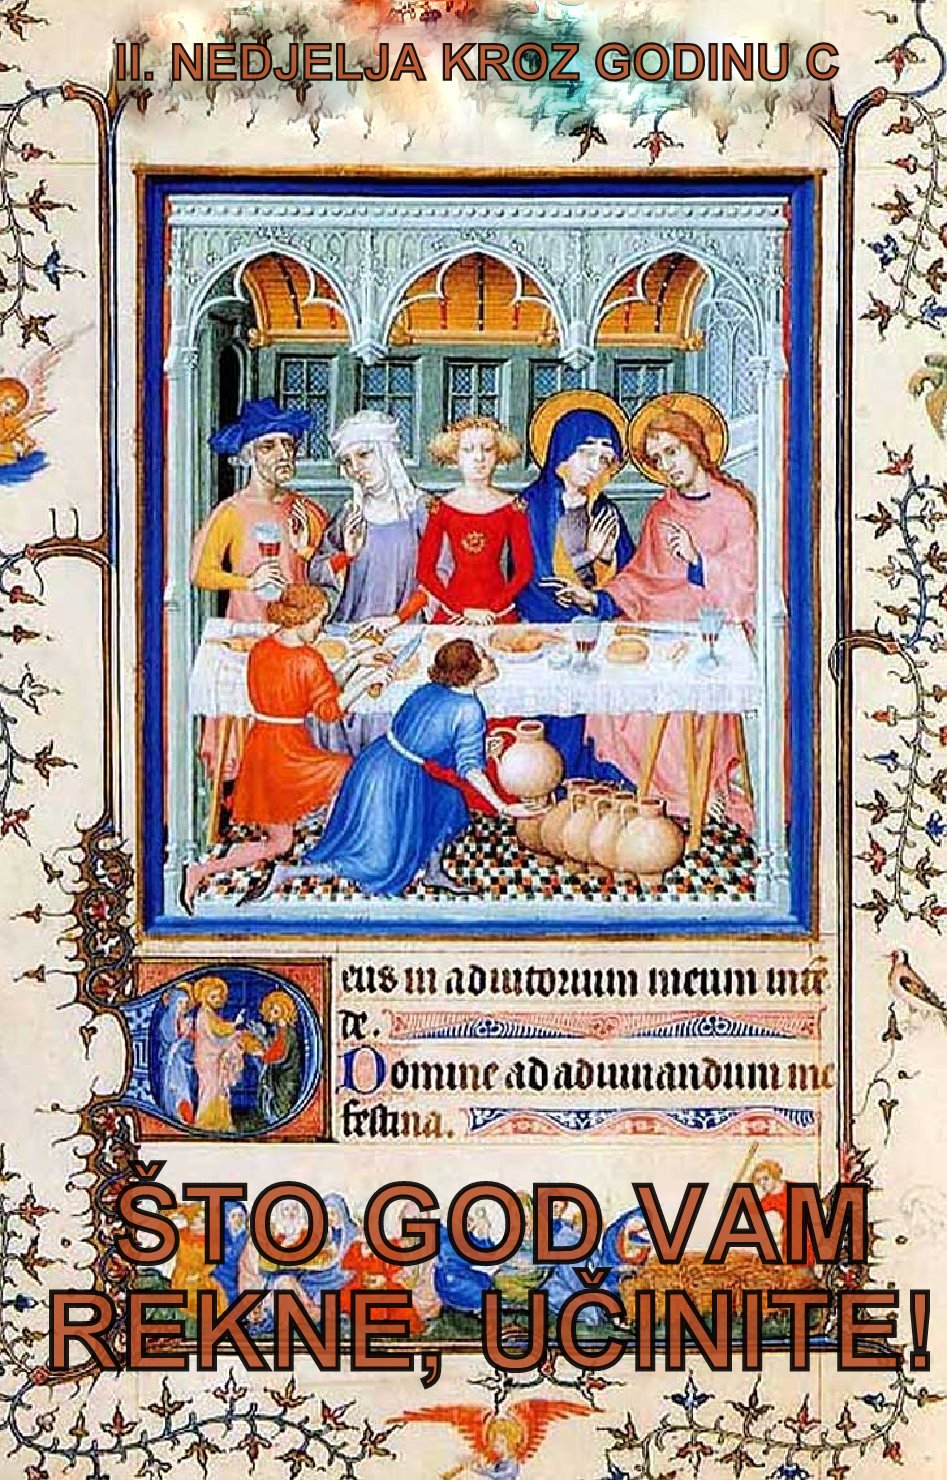 II. NEDJELJA KROZ GODINU C
Deus in adiutorium meum inte͂
de.
Domine ad adiuuandum me
festina.
ŠTO GOD VAM
REKNE, UČINITE!